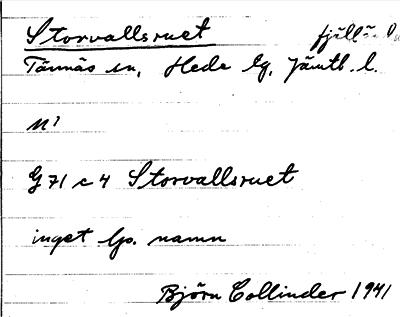 Storvallsruet
Tännäs sn, Hede tg, Jämtl. l.
N¹
G 71 c 4 Storvallsruet
inget lp. namn
Björn Collinder 1941